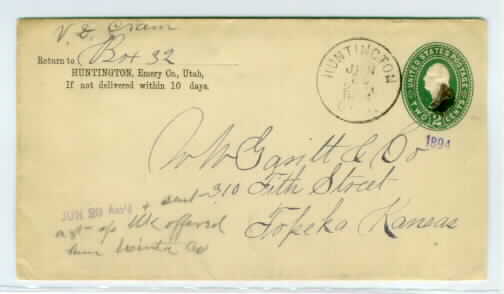 V. E. Cram
Return to Box 32
HUNTINGTON, Emery Co., Utah,
If not delivered within 10 days.
HUNTINGTON
JUN
UNITED STATES POSTAGE
TWO 2 CENTS
1894
W W Gavitt & Co
310 Fifth Street
Topeka Kansas
JUN 29 & sent
agt of offered